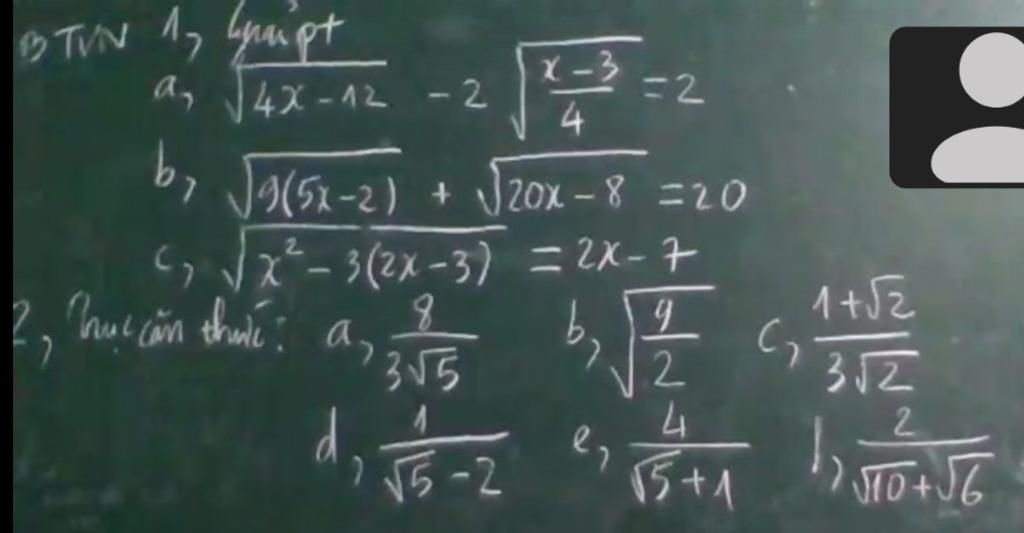 BTVN 1, Giải pt
a, √(4x-12) - 2√((x-3)/4) = 2
b, √(9(5x-2)) + √(20x-8) = 20
c, √(x² - 3(2x-3)) = 2x - 7
2, Trục căn thức: a, 8/(3√5) b, √(9/2) c, (1+√2)/(3√2)
d, 1/(√5-2) e, 4/(√5+1) f, 2/(√10+√6)